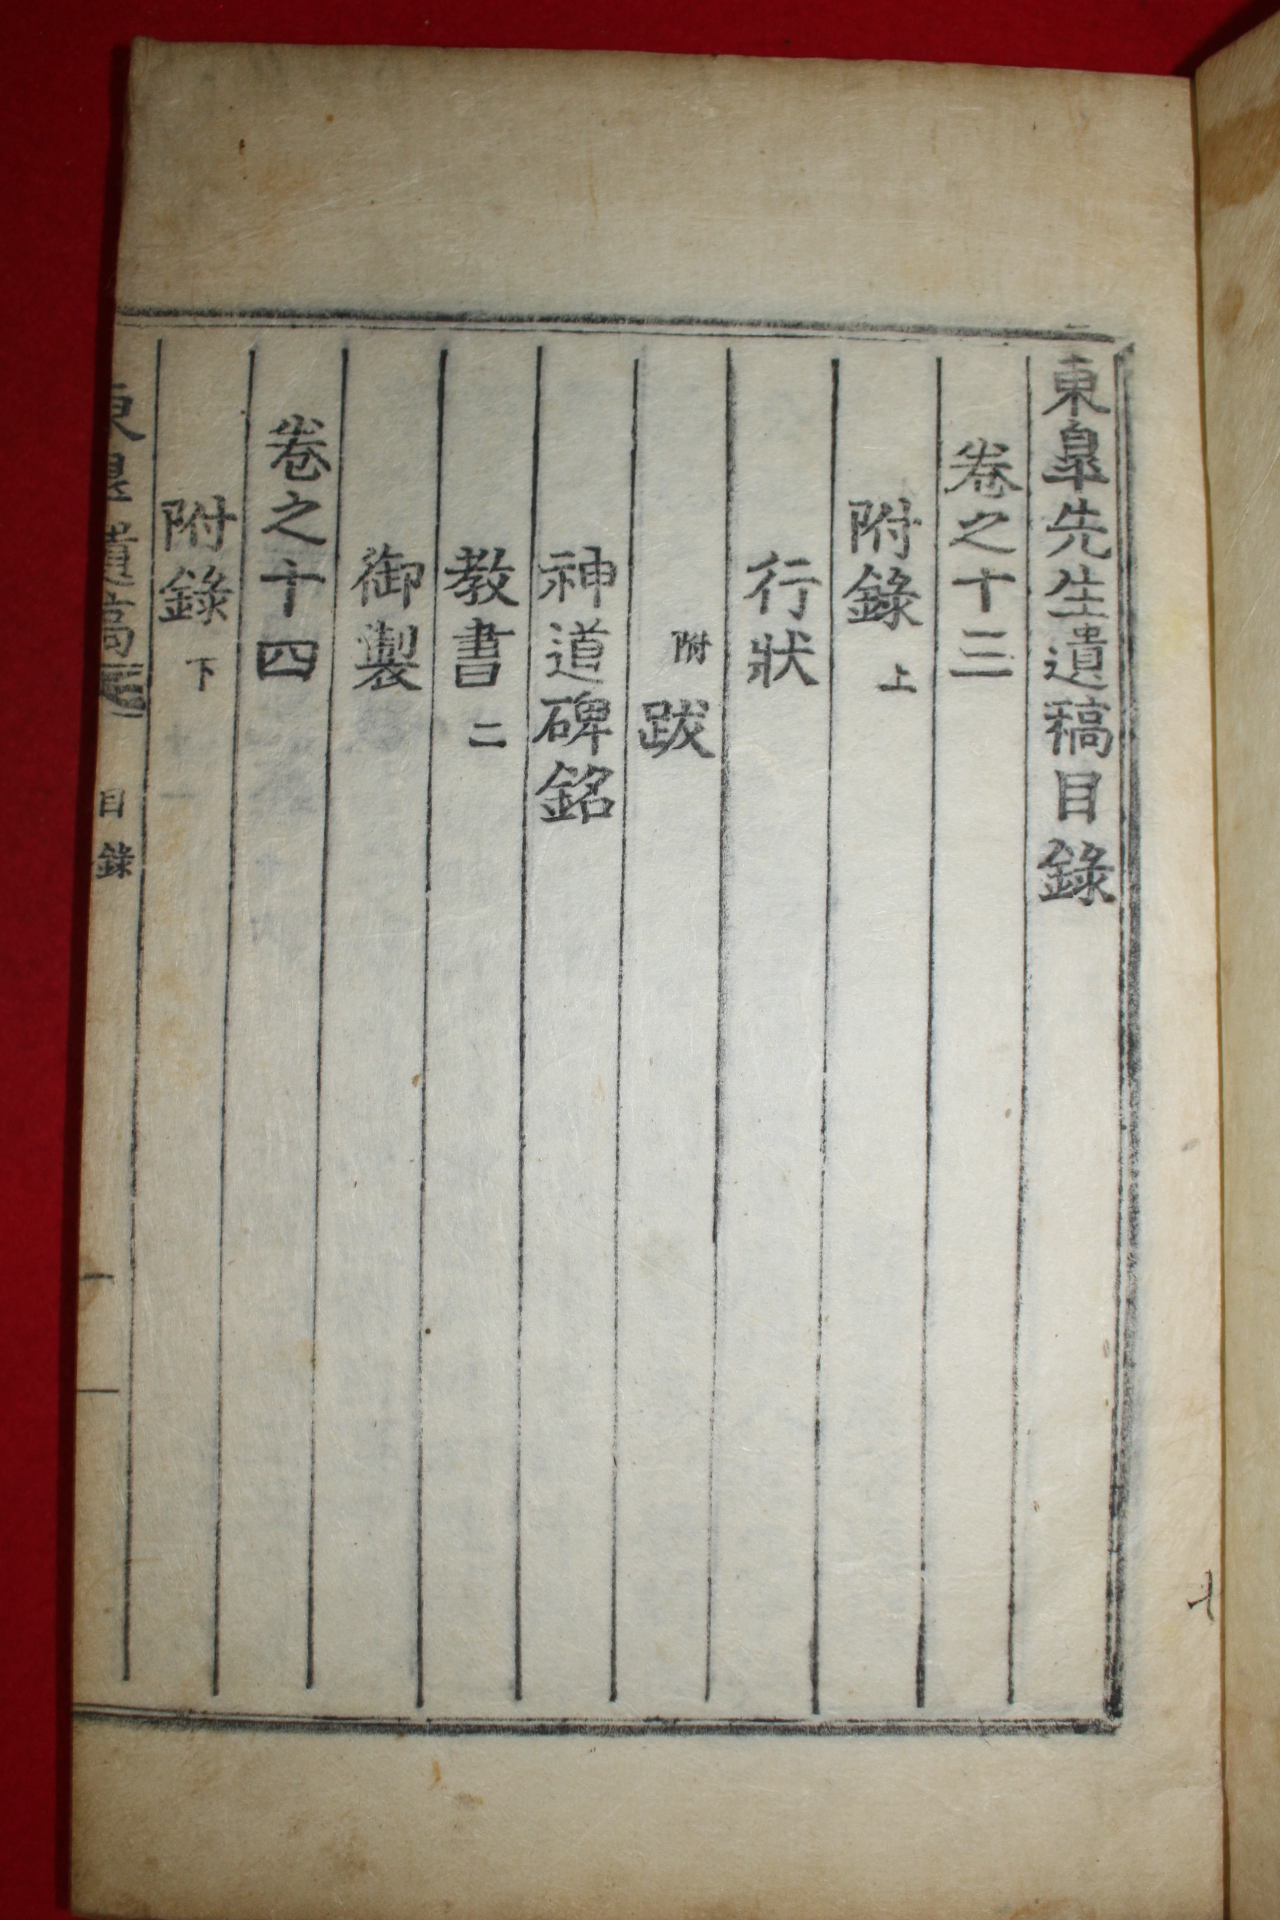 東臯先生遺稿目錄
卷之十三
附錄上
行狀
附跋
神道碑銘
教書二
御製
卷之十四
附錄下
東臯遺稿 目錄 一